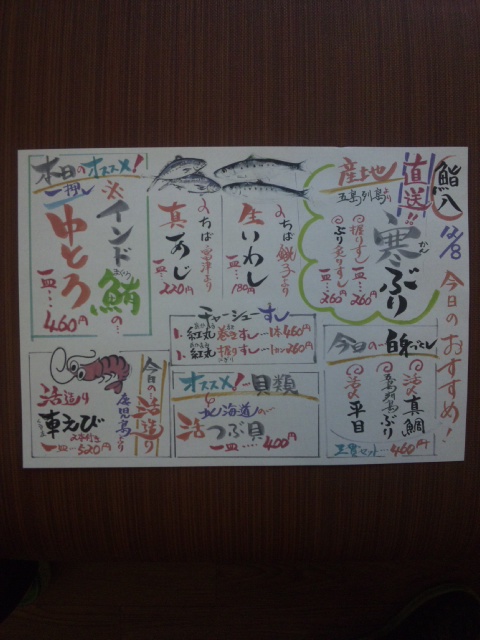 鮨八
12/8
今日のおすすめ!
産地直送!!
五島列島より
寒ぶり
かん
握りずし
一皿…260円
ぶり炙りずし
一皿…260円
今日の白身
活〆真鯛
五島列島ぶり
活〆平目
三貫セット…460円
のちば銚子より
生いわし
一皿…180円
のちば富津より
真あじ
一皿…220円
チャーシューずし
1、紅丸巻きずし…1本460円
1、紅丸握りずし…1カン260円
オススメ!貝類
北海道の
活つぶ貝
一皿….400円
本日のオススメ!
一押し
インド鮪の…
まぐろ
中とろ
一皿…460円
今日の活造り
鹿児島より
活造り
車えび
一皿…520円